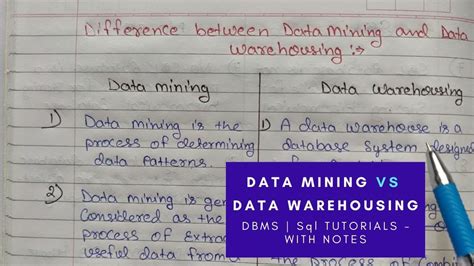 Difference between Data Mining and Data
Warehousing :->
Data mining
Data Warehousing
1) Data mining is the
process of determining
data Patterns.
2) Data mining is gen
Considered as the
process of Extrac
useful data from a
1) A data warehouse is a
database system designe
DATA MINING VS
DATA WAREHOUSING
DBMS | Sql TUTORIALS -
WITH NOTES